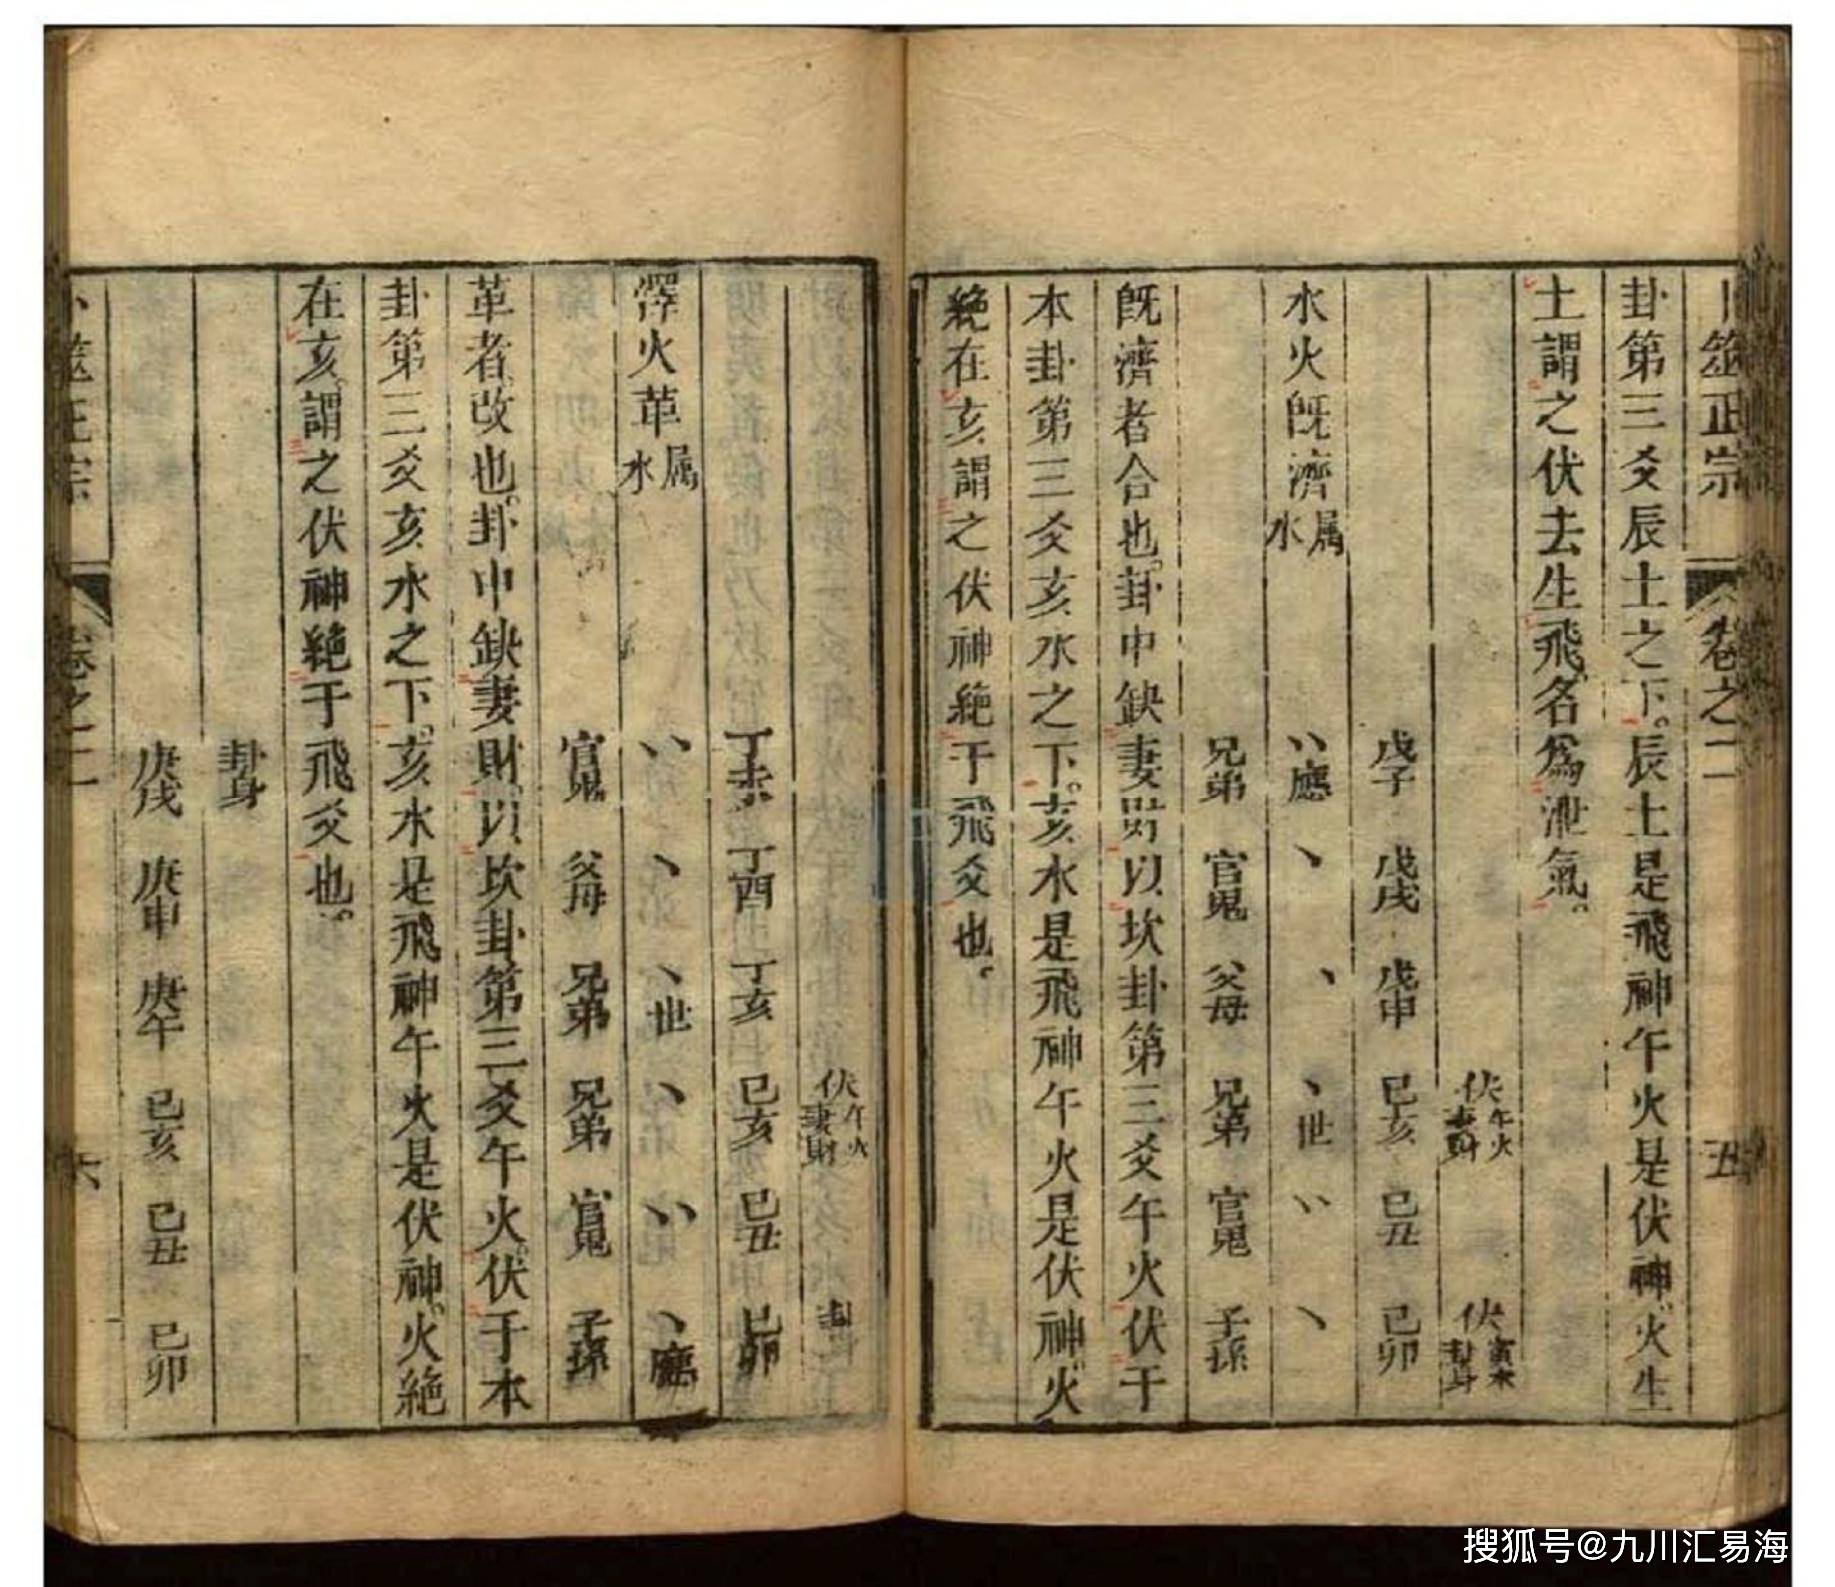 卜筮正宗 卷之二 五
卦第三爻辰土之下。辰土是飛神午火是伏神火生
土謂之伏去生飛名為泄氣。
伏午火妻財 伏寅木卦身
戊子 戊戌 戊申 己亥 己丑 己卯
水火既濟属水 〃應 丶 〃 丶世 〃 丶
兄弟 官鬼 父母 兄弟 官鬼 子孫
既濟者合也。卦中缺妻財以坎卦第三爻午火伏于
本卦第三爻亥水之下。亥水是飛神午火是伏神火
絶在亥謂之伏神絶于飛爻也。
伏午火妻財
丁未 丁酉 丁亥 己亥 己丑 己卯
澤火革属水 〃 丶 丶世 丶 〃 丶應
官鬼 父母 兄弟 兄弟 官鬼 子孫
革者改也。卦中缺妻財以坎卦第三爻午火伏于本
卦第三爻亥水之下。亥水是飛神午火是伏神火絶
在亥謂之伏神絶于飛爻也。
卦身
庚戌 庚申 庚午 己亥 己丑 己卯
卜筮正宗 卷之二 六
搜狐号@九川汇易海